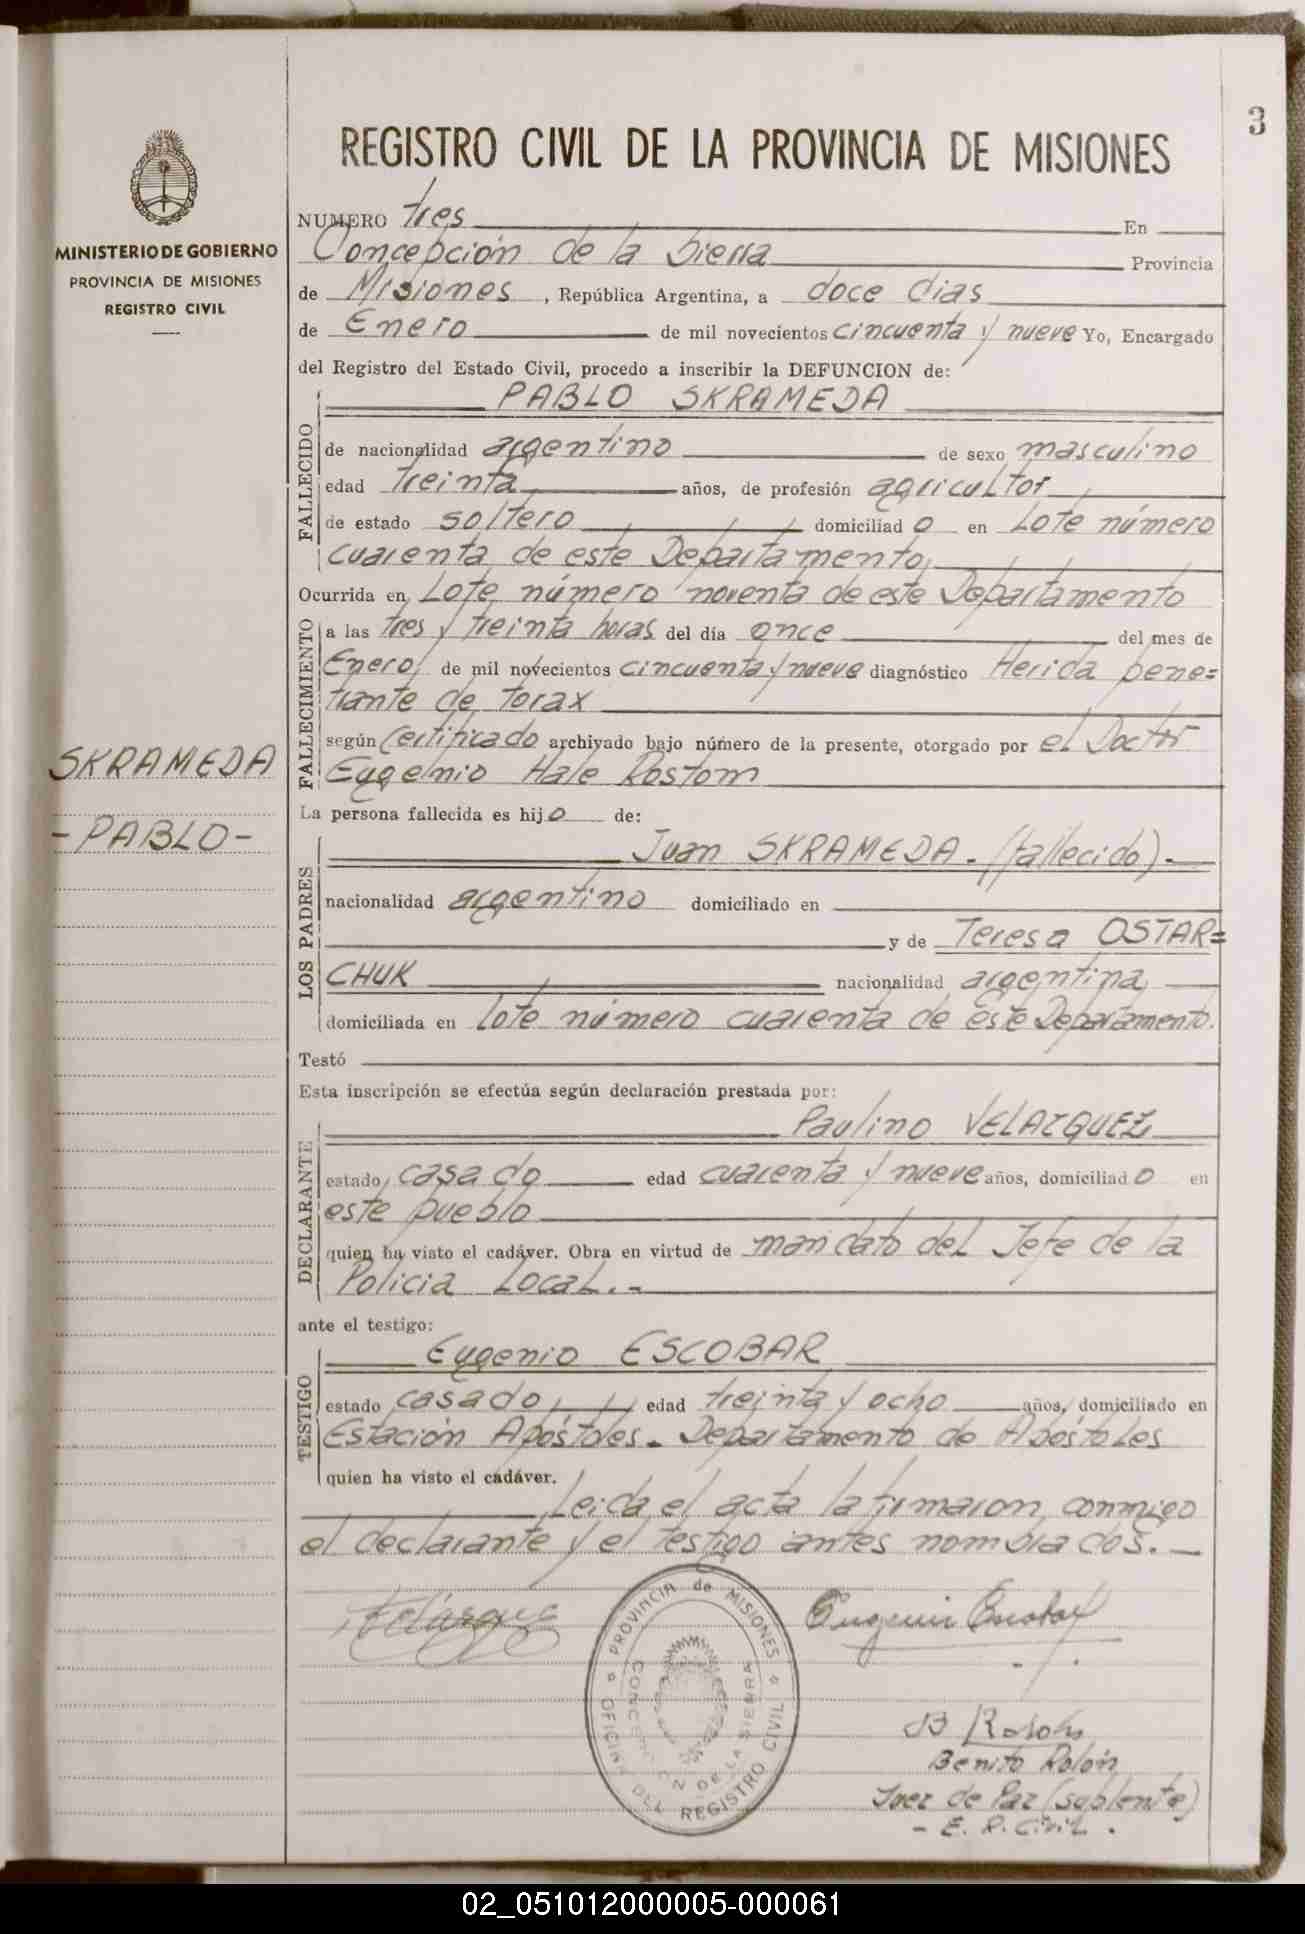 3
REGISTRO CIVIL DE LA PROVINCIA DE MISIONES
MINISTERIO DE GOBIERNO
PROVINCIA DE MISIONES
REGISTRO CIVIL
NUMERO tres En
Concepción de la Sierra Provincia
de Misiones, República Argentina, a doce dias
de Enero de mil novecientos cincuenta y nueve Yo, Encargado
del Registro del Estado Civil, procedo a inscribir la DEFUNCION de:
PABLO SKRAMEDA
FALLECIDO
de nacionalidad argentino de sexo masculino
edad treinta años, de profesión agricultor
de estado soltero domiciliado en Lote número
cuarenta de este Departamento
FALLECIMIENTO
Ocurrida en Lote número noventa de este Departamento
a las tres y treinta horas del día once del mes de
Enero de mil novecientos cincuenta y nueve diagnóstico Herida pene=
trante de torax
según certificado archivado bajo número de la presente, otorgado por el Doctor
Eugenio Hale Rostom
SKRAMEDA
-PABLO-
La persona fallecida es hijo de:
LOS PADRES
Juan SKRAMEDA.(fallecido).-
nacionalidad argentino domiciliado en
y de Teresa OSTAR=
CHUK nacionalidad argentina
domiciliada en lote número cuarenta de este Departamento.
Testó
Esta inscripción se efectúa según declaración prestada por:
DECLARANTE
Paulino VELAZQUEZ
estado casado edad cuarenta y nueve años, domiciliado en
este pueblo
quien ha visto el cadáver. Obra en virtud de mandato del Jefe de la
Policia Local.-
ante el testigo:
TESTIGO
Eugenio ESCOBAR
estado casado, edad treinta y ocho años, domiciliado en
Estación Apóstoles. Departamento de Apóstoles
quien ha visto el cadáver.
Leida el acta la firmaron conmigo
el declarante y el testigo antes nombrados.-
PROVINCIA de MISIONES
OFICINA DEL REGISTRO CIVIL
CONCEPCION DE LA SIERRA
Eugenio Escobar
Benito Rolón
Juez de Paz (suplente)
- E. R. Civil.
02_051012000005-000061